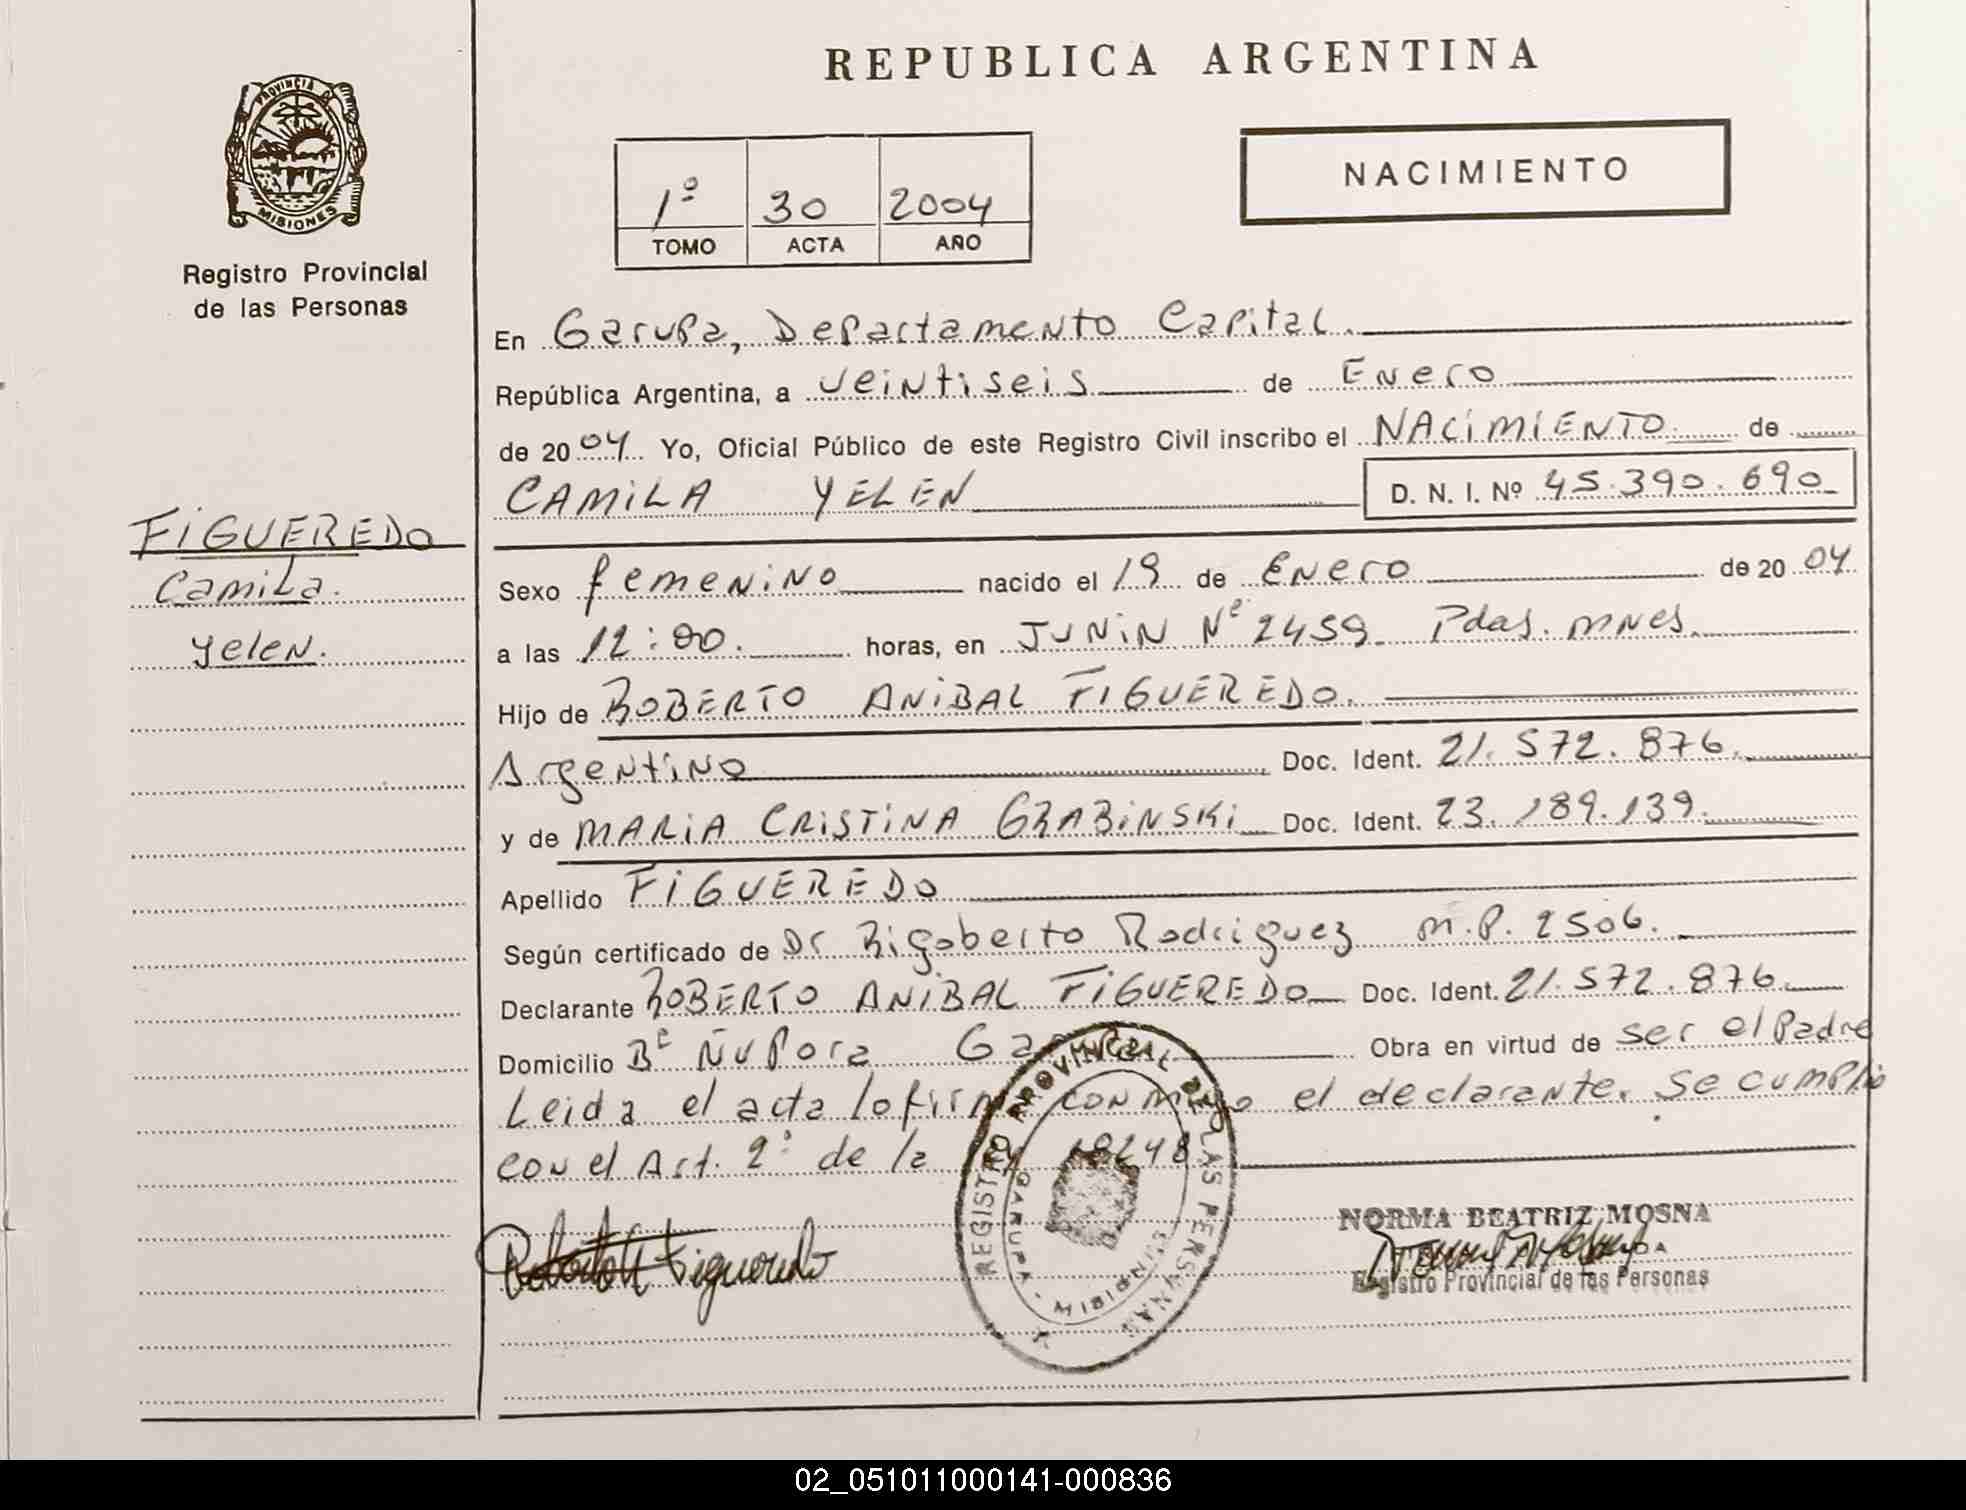 REPUBLICA ARGENTINA
PROVINCIA DE
MISIONES
Registro Provincial
de las Personas
1º 30 2004
TOMO ACTA AÑO
NACIMIENTO
En Garupa, Departamento Capital.
República Argentina, a veintiseis de Enero
de 2004 Yo, Oficial Público de este Registro Civil inscribo el NACIMIENTO de
CAMILA YELEN D. N. I. Nº 45.390.690
FIGUEREDO
Camila.
yelen.
Sexo femenino nacido el 19 de Enero de 2004
a las 12:00. horas, en JUNIN Nº 2459 Pdas. mnes.
Hijo de ROBERTO ANIBAL FIGUEREDO.
Argentino Doc. Ident. 21.572.876.
y de MARIA CRISTINA GRABINSKI Doc. Ident. 23.189.139.
Apellido FIGUEREDO
Según certificado de Dr Rigoberto Rodriguez M.P. 2506.
Declarante ROBERTO ANIBAL FIGUEREDO Doc. Ident. 21.572.876.
Domicilio Bº ÑuPora Obra en virtud de ser el Padre
Leida el acta la conmigo el declarante. Se cumplio
con el Art. 2º de la 18248
REGISTRO PROVINCIAL DE LAS PERSONAS
GARUPA - MISIONES
Figueredo
NORMA BEATRIZ MOSNA
Registro Provincial de las Personas
02_051011000141-000836